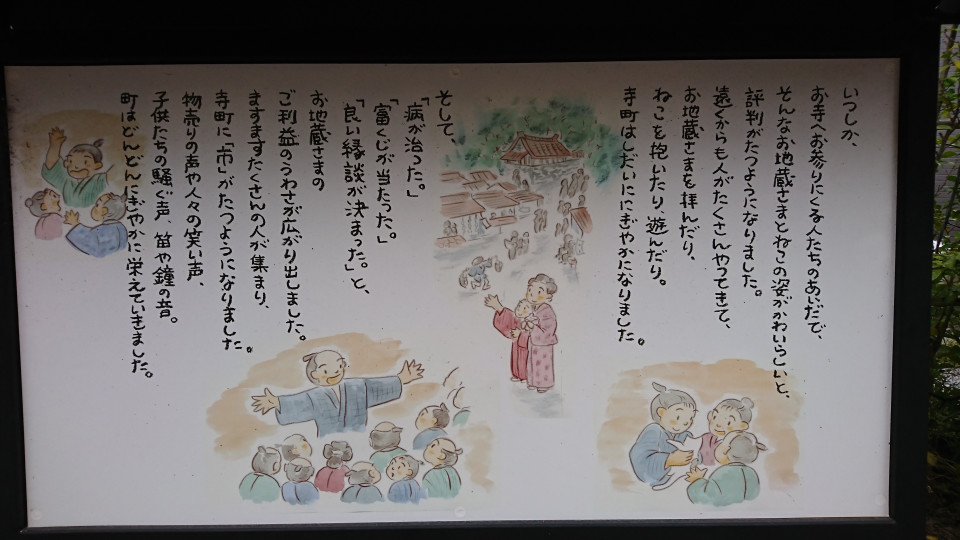 いつしか、
お寺へお参りにくる人たちのあいだで、
そんなお地蔵さまとねこの姿がかわいらしいと、
評判がたつようになりました。
遠くからも人がたくさんやってきて、
お地蔵さまを拝んだり、
ねこを抱いたり、遊んだり。
寺町はしだいににぎやかになりました。
そして、
「病が治った。」
「富くじが当たった。」
「良い縁談が決まった。」と、
お地蔵さまの
ご利益のうわさが広がり出しました。
ますますたくさんの人が集まり、
寺町に「市」がたつようになりました。
物売りの声や人々の笑い声、
子供たちの騒ぐ声、笛や鐘の音。
町はどんどんにぎやかに栄えていきました。